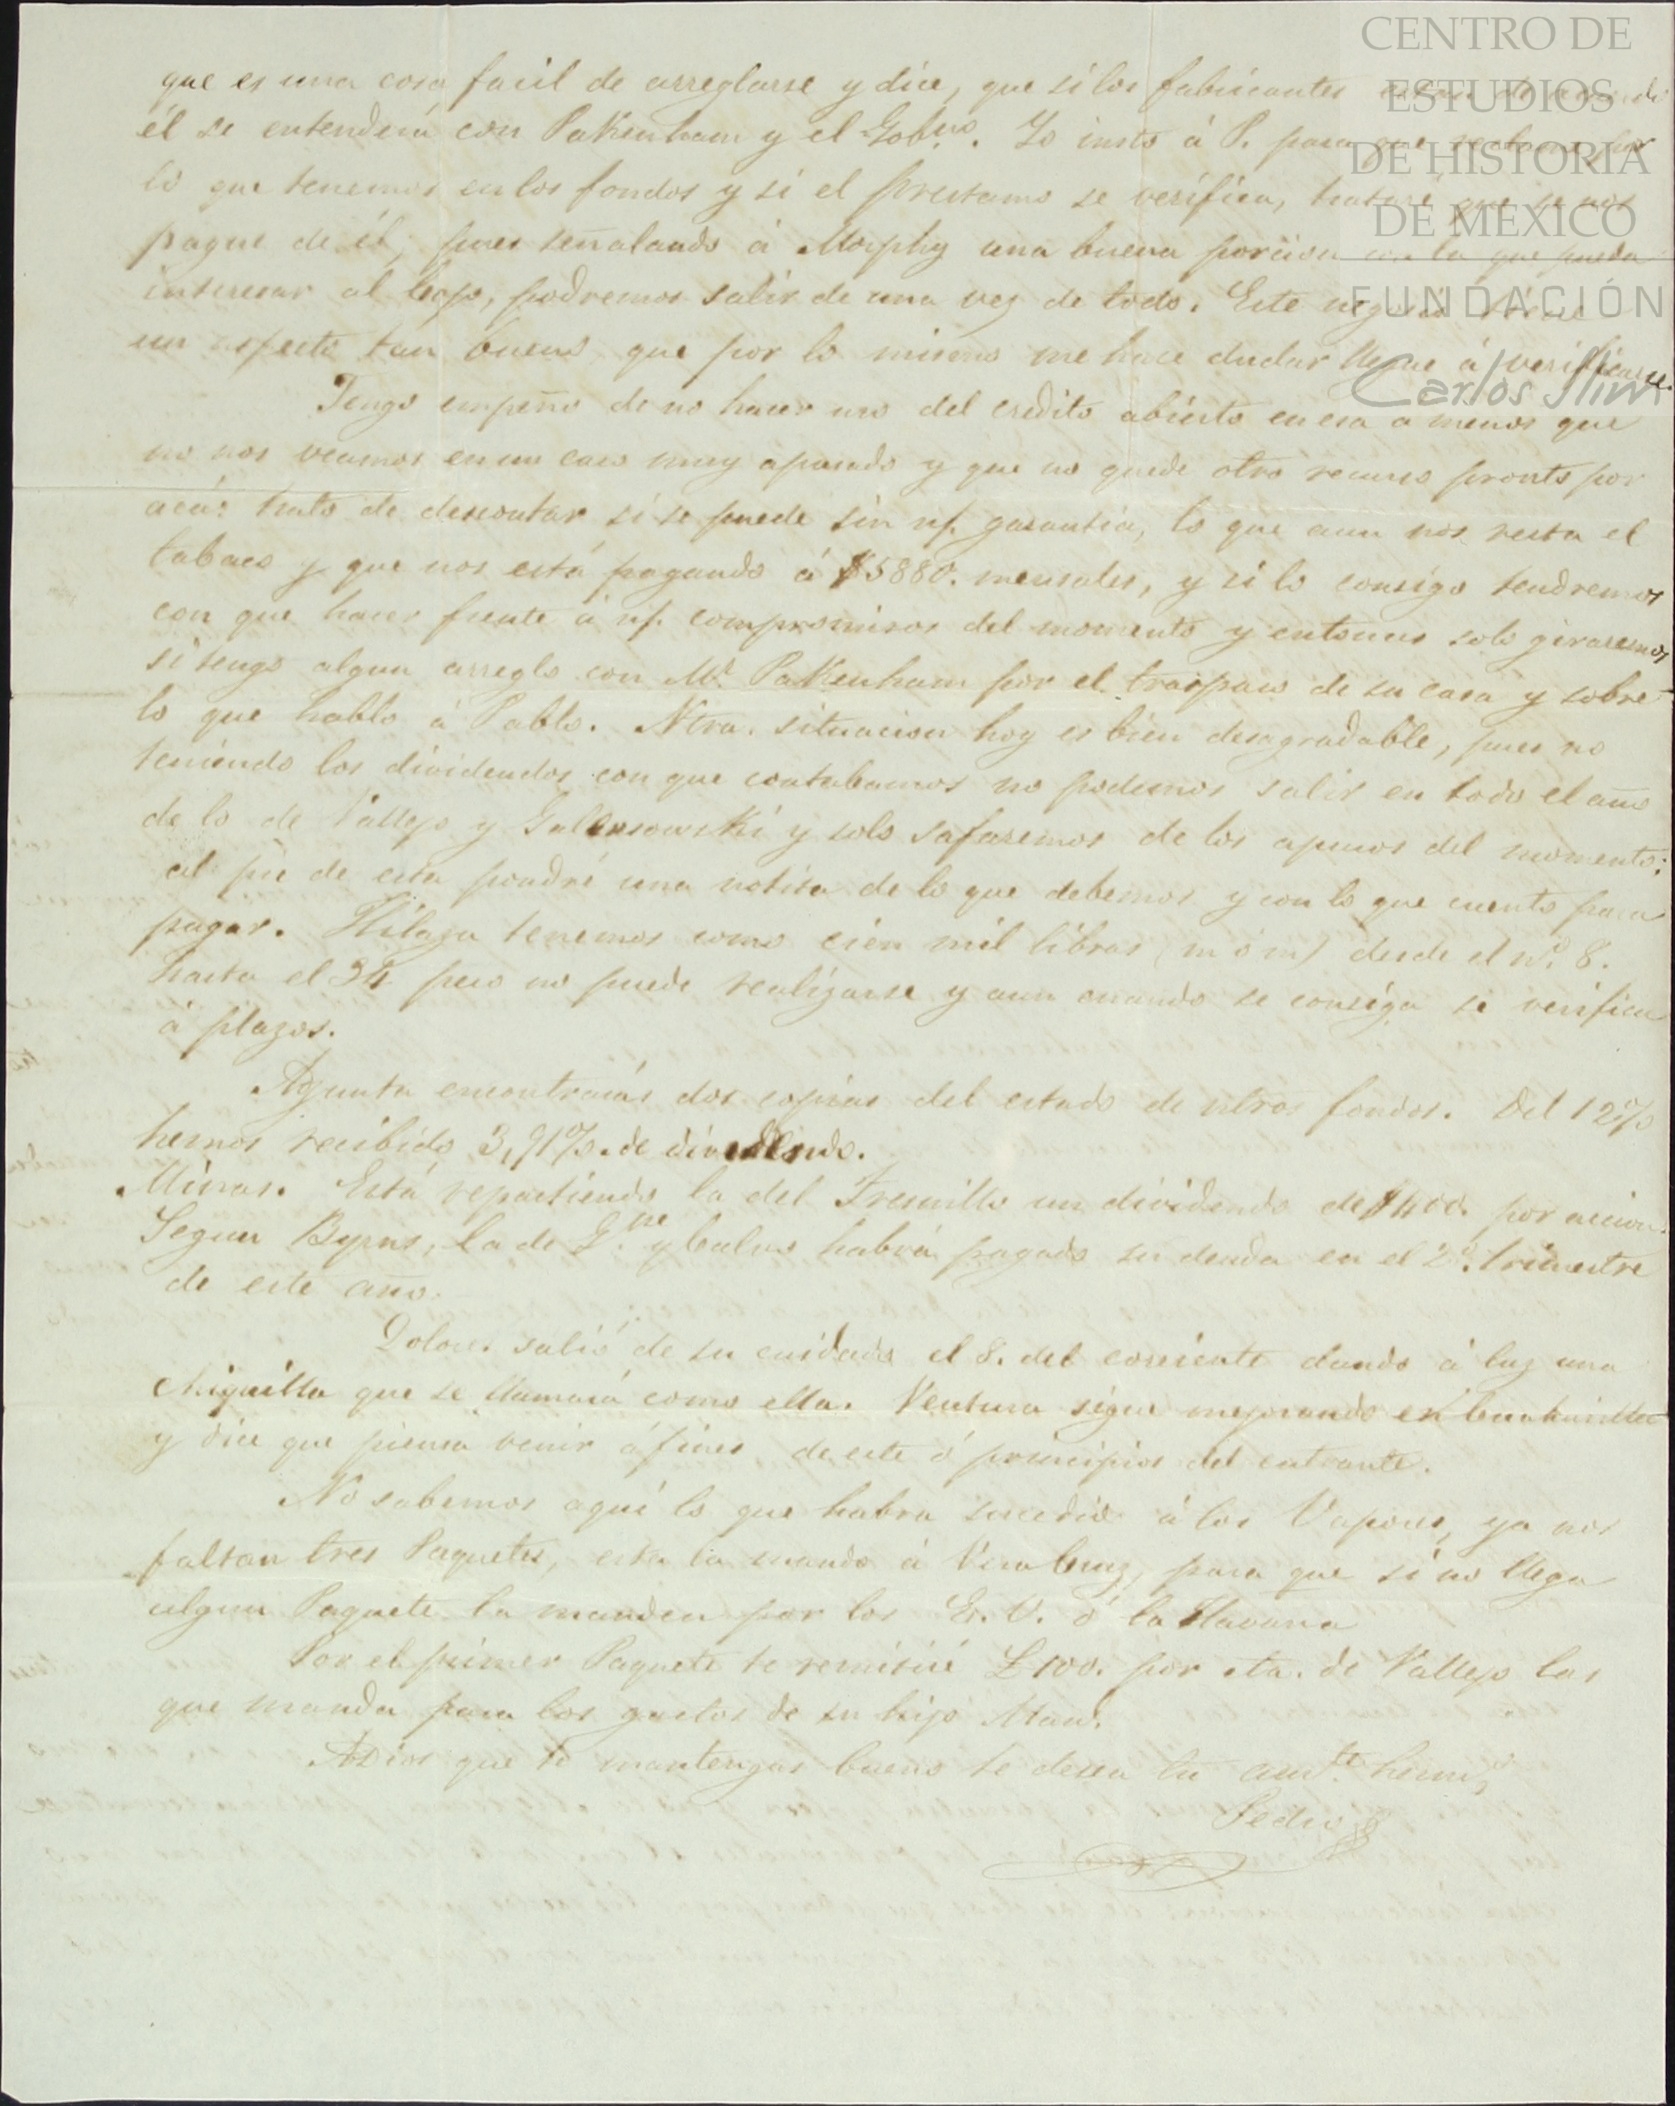 CENTRO DE
ESTUDIOS
DE HISTORIA
DE MÉXICO
FUNDACIÓN
Carlos Slim
que es una cosa facil de arreglarse y dice, que si los fabricantes estan de acuerdo
él se entenderá con Pakenham y el Gob.no. Yo insto á P. para que reclame por
lo que tenemos en los fondos y si el prestamo se verifica, trataré que se nos
pague de él, pues señalando á Morphy una buena porcion con la que pueda
interesar al Cojo, podremos salir de una vez de todo. Este negocio tiene
un aspecto tan bueno que por lo mismo me hace dudar llegue á verificarse.
Tengo empeño de no hacer uso del credito abierto en esa a menos que
no nos veamos en un caso muy apurado y que no quede otro recurso pronto por
acá: trato de descontar si se puede sin nf. garantia, lo que aun nos resta el
tabaco y que nos está pagando á $5880. mensales, y si lo consigo tendremos
con que hacer frente á nf. compromisos del momento y entonces solo giraremos
si tengo algun arreglo con Mr. Pakenham por el traspaso de su casa y sobre
lo que hablo á Pablo. Ntra. situacion hoy es bien desagradable, pues no
teniendo los dividendos con que contabamos no podemos salir en todo el año
de lo de Vallejo y Galensowski y solo safaremos de los apuros del momento:
al pie de esta pondré una notisa de lo que debemos y con lo que cuento para
pagar. Hilaza tenemos como cien mil libras (m ó m) desde el n.o 8.
hasta el 34 pero no puede realizarse y aun cuando se consiga se verifica
á plazos.
Adjunta encontrarás dos copias del estado de ntros fondos. Del 12%
hemos recibido 3,91%. de dividendo.
Minas. Está repartiendo la del Fresnillo un dividendo de $400. por accion.
Segun Byrns, la de G.pe y Calvo habrá pagado su deuda en el 2.o trimestre
de este año.
Dolores salió de su cuidado el 8. del corriente dando á luz una
chiquilla que se llamará como ella. Ventura sigue mejorando en
y dice que piensa venir á fines de este ó principios del entrante.
No sabemos aquí lo que habra sucedido á los Vapores, ya nos
faltan tres Paquetes, esta la mando á Vera Cruz, para que si no llega
algun Paquete la manden por los E. U. ó la Havana
Por el primer Paquete te remitiré £100. por cta. de Vallejo las
que manda para los gastos de su hijo Man.
Adios que te mantengas bueno te desea tu am.te herm.o
Pedro